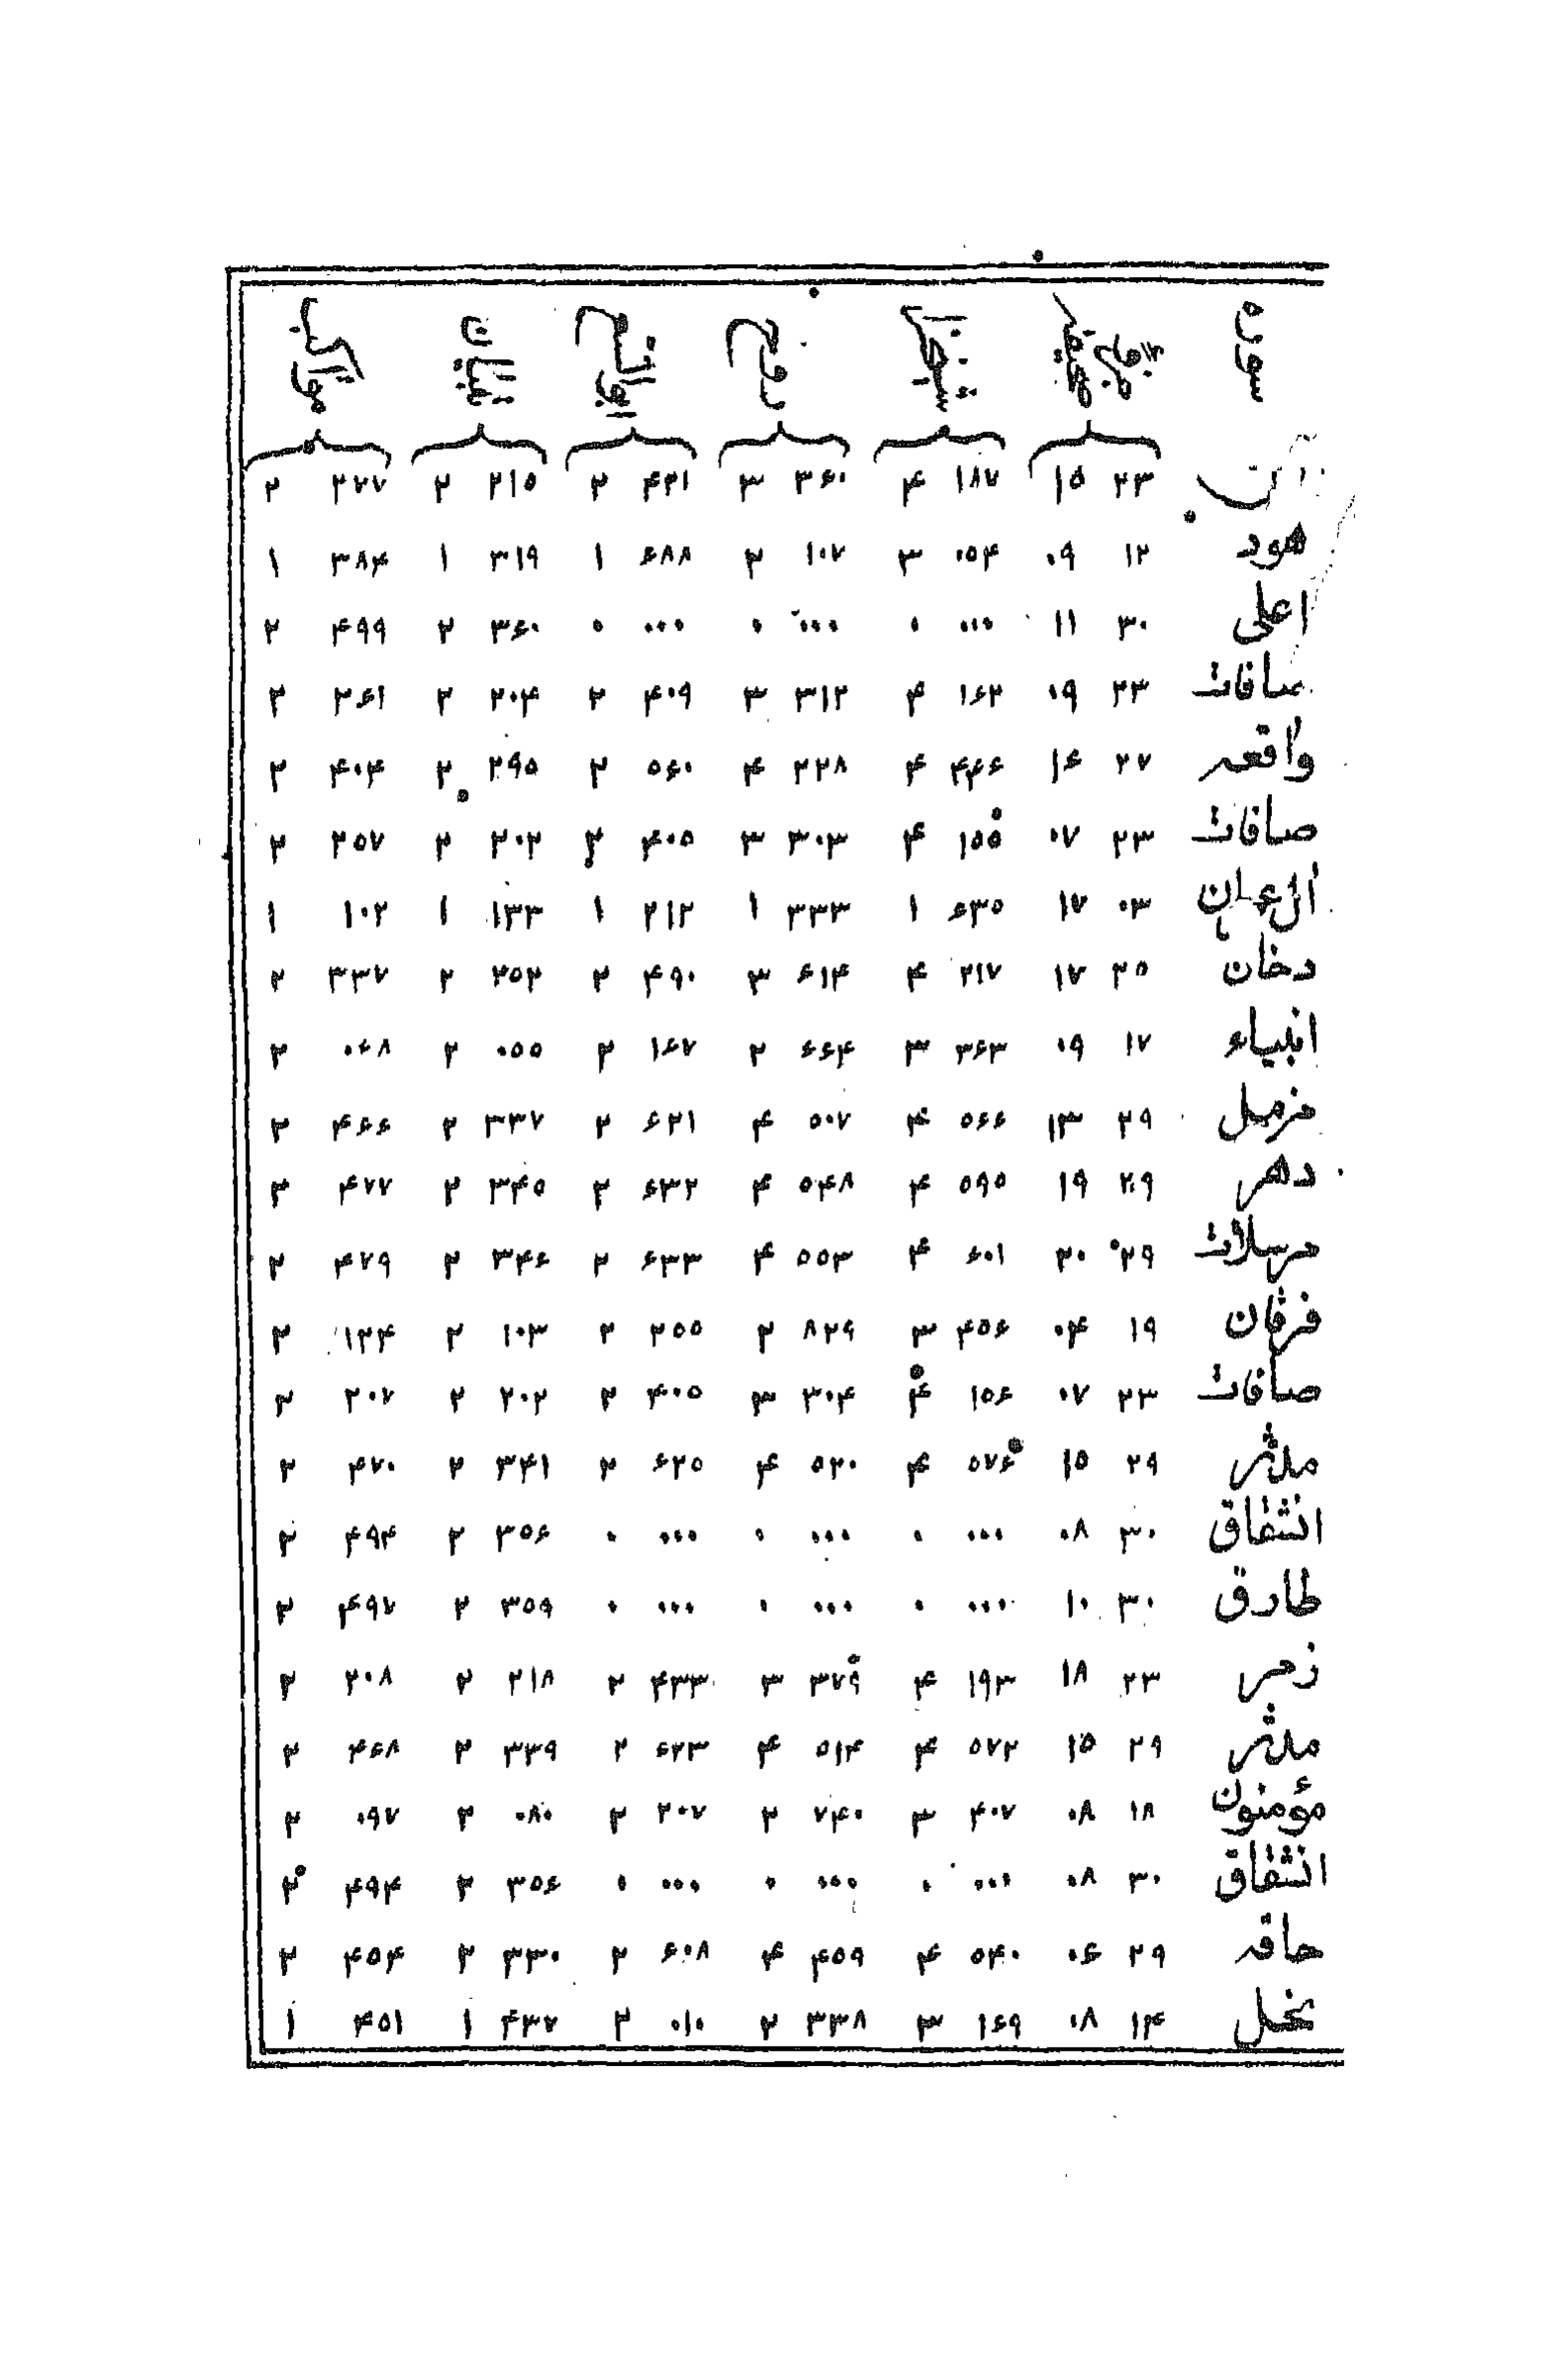 سوره
۲۳ ۱۵ ۱۸۷ ۴ ۳۶۰ ۳ ۴۲۱ ۲ ۲۱۵ ۲ ۲۷۷ ۲
هود ۱۲ ۰۹ ۰۵۴ ۳ ۱۰۷ ۲ ۶۸۸ ۱ ۳۱۹ ۱ ۳۸۴ ۱
اعلی ۳۰ ۱۱ ۰۰۰ ۰ ۰۰۰ ۰ ۰۰۰ ۰ ۳۶۰ ۲ ۴۹۹ ۲
صافات ۲۳ ۰۹ ۱۶۲ ۴ ۳۱۲ ۳ ۴۰۹ ۲ ۲۰۴ ۲ ۲۶۱ ۲
واقعه ۲۷ ۱۶ ۴۴۶ ۴ ۲۲۸ ۴ ۵۶۰ ۲ ۲۹۵ ۲ ۴۰۴ ۲
صافات ۲۳ ۰۷ ۱۵۵ ۴ ۳۰۳ ۳ ۴۰۵ ۲ ۲۰۲ ۲ ۲۵۷ ۲
آل عمران ۰۳ ۱۷ ۶۳۵ ۱ ۳۳۳ ۱ ۲۱۲ ۱ ۱۳۳ ۱ ۱۰۲ ۱
دخان ۲۵ ۱۷ ۲۱۷ ۴ ۶۱۴ ۳ ۴۹۰ ۲ ۲۵۲ ۲ ۳۳۷ ۲
انبیاء ۱۷ ۰۹ ۳۶۳ ۳ ۶۶۴ ۲ ۱۶۷ ۲ ۰۵۵ ۲ ۰۶۸ ۲
مزمل ۲۹ ۱۳ ۵۶۶ ۴ ۵۰۷ ۴ ۶۲۱ ۲ ۳۳۷ ۲ ۴۶۶ ۲
دهر ۲۹ ۱۹ ۵۹۵ ۴ ۵۴۸ ۴ ۶۳۲ ۲ ۳۴۵ ۲ ۴۷۷ ۲
مرسلات ۲۹ ۲۰ ۶۰۱ ۴ ۵۵۳ ۴ ۶۳۳ ۲ ۳۴۶ ۲ ۴۷۹ ۲
فرقان ۱۹ ۰۴ ۴۵۶ ۳ ۸۲۹ ۲ ۲۵۵ ۲ ۱۰۳ ۲ ۱۲۴ ۲
صافات ۲۳ ۰۷ ۱۵۶ ۴ ۳۰۴ ۳ ۴۰۵ ۲ ۲۰۲ ۲ ۲۰۷ ۲
مدثر ۲۹ ۱۵ ۵۷۶ ۴ ۵۲۰ ۴ ۶۲۵ ۲ ۳۴۱ ۲ ۴۷۰ ۲
انشقاق ۳۰ ۰۸ ۰۰۰ ۰ ۰۰۰ ۰ ۰۰۰ ۰ ۳۵۶ ۲ ۴۹۴ ۲
طارق ۳۰ ۱۰ ۰۰۰ ۰ ۰۰۰ ۰ ۰۰۰ ۰ ۳۵۹ ۲ ۴۹۷ ۲
زمر ۲۳ ۱۸ ۱۹۳ ۴ ۳۷۹ ۳ ۴۳۳ ۲ ۲۱۸ ۲ ۲۰۸ ۲
مدثر ۲۹ ۱۵ ۵۷۲ ۴ ۵۱۴ ۴ ۶۲۳ ۲ ۳۳۹ ۲ ۴۶۸ ۲
مؤمنون ۱۸ ۰۸ ۴۰۷ ۳ ۷۴۰ ۲ ۲۰۷ ۲ ۰۸۰ ۲ ۰۹۷ ۲
انشقاق ۳۰ ۰۸ ۰۰۰ ۰ ۰۰۰ ۰ ۰۰۰ ۰ ۳۵۶ ۲ ۴۹۴ ۲
حاقه ۲۹ ۰۶ ۵۴۰ ۴ ۴۵۹ ۴ ۶۰۸ ۲ ۳۳۰ ۲ ۴۵۴ ۲
نحل ۱۴ ۰۸ ۱۶۹ ۳ ۳۳۸ ۲ ۰۱۰ ۲ ۴۳۷ ۱ ۴۵۱ ۱